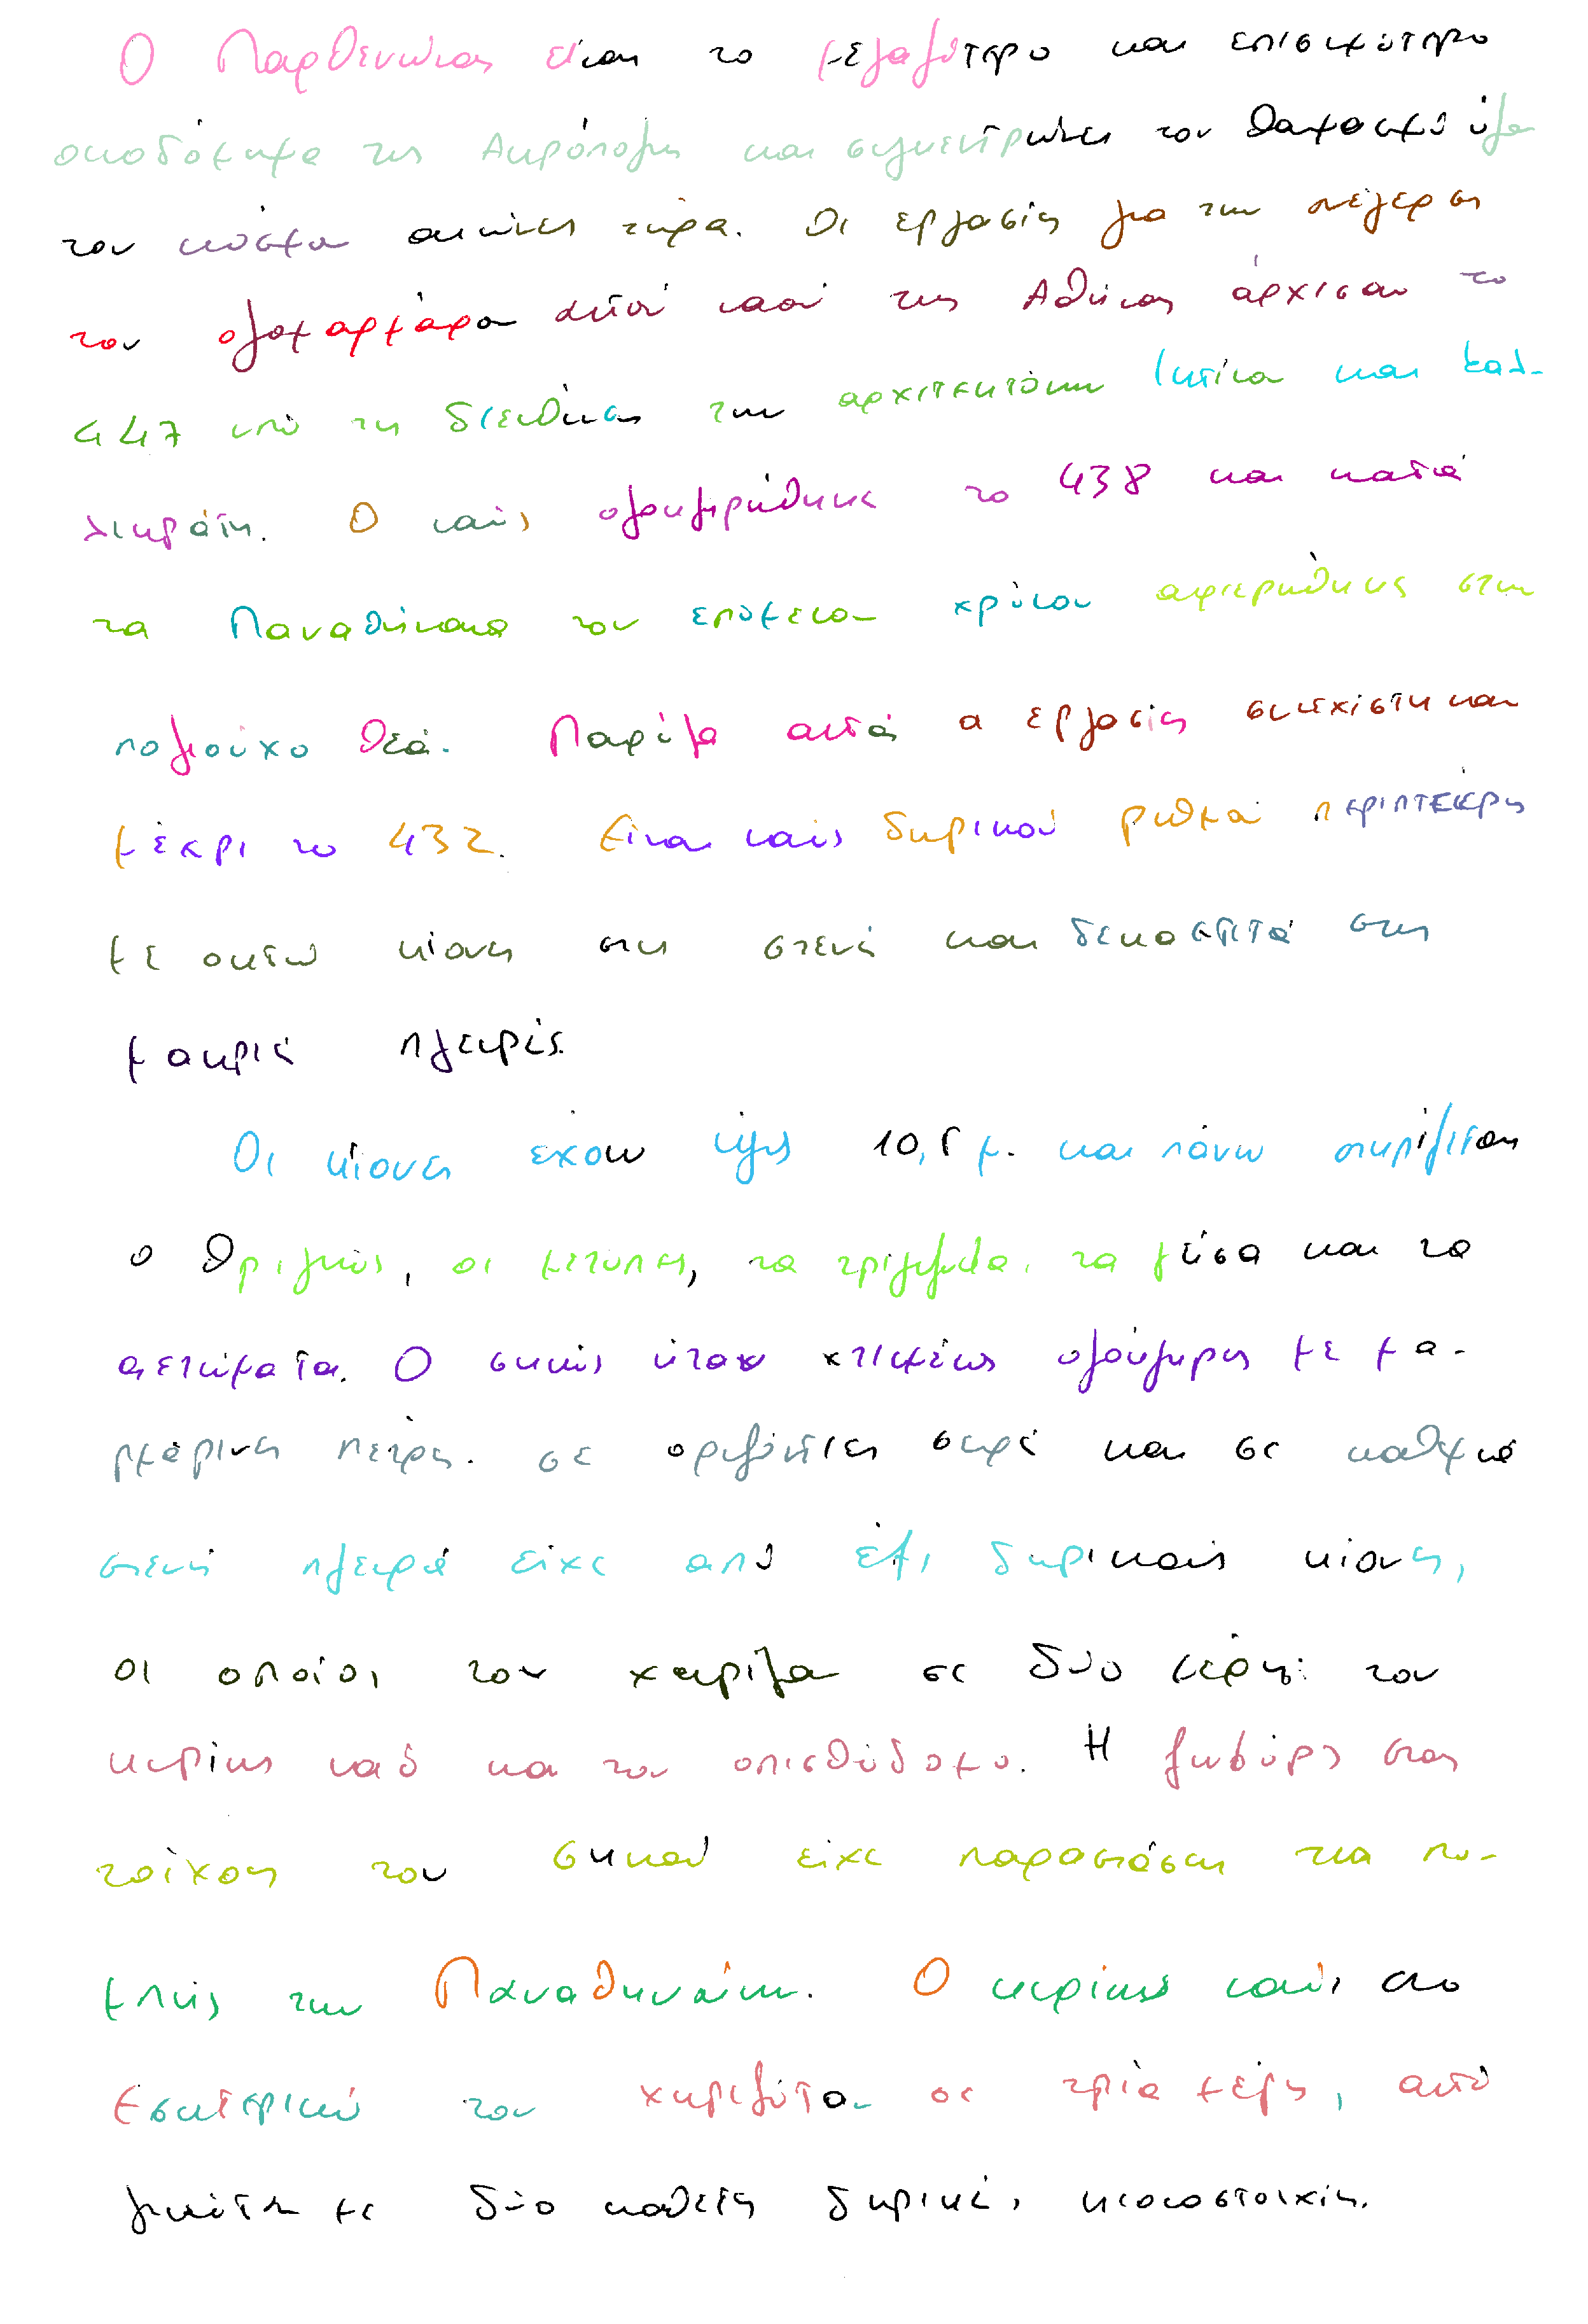 Ο Παρθενώνας είναι το μεγαλύτερο και επισημότερο
οικοδόμημα της Ακρόπολης και συγκεντρώνει τον θαυμασμό όλου
του κόσμου αιώνες τώρα. Οι εργασίες για την ανέγερση
του ολομάρμαρου αυτού ναού της Αθηνάς άρχισαν το
447 υπό τη διεύθυνση των αρχιτεκτόνων Ικτίνου και Καλ-
λικράτη. Ο ναός ολοκληρώθηκε το 438 και κατά
τα Παναθήναια του επόμενου χρόνου αφιερώθηκε στην
πολιούχο θεά. Παρόλα αυτά οι εργασίες συνεχίστηκαν
μέχρι το 432. Είναι ναός δωρικού ρυθμού περίπτερος
με οκτώ κίονες στη στενή και δεκαεπτά στις
μακριές πλευρές.
Οι κίονες έχουν ύψος 10,5 μ. και πάνω στηρίζεται
ο θριγκός, οι μετόπες, τα τρίγλυφα, τα γείσα και τα
αετώματα. Ο σηκός ήταν κτισμένος ολόκληρος με μα-
ρμάρινες πέτρες σε οριζόντιες σειρές και σε καθεμιά
στενή πλευρά είχε από έξι δωρικούς κίονες,
οι οποίοι τον χώριζαν σε δύο μέρη: τον
κυρίως ναό και τον οπισθόδομο. Η ζωφόρος στους
τοίχους του σηκού είχε παραστάσεις της πο-
μπής των Παναθηναίων. Ο κυρίως ναός στο
εσωτερικό του χωριζόταν σε τρία μέρη, αυτό
γινόταν με δύο κάθετες δωρικές κιονοστοιχίες.